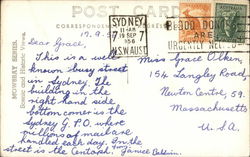 POST CARD
CORRESPONDENCE
MOWBRAY SERIES.
Scenic and Historic Views.
SYDNEY
11-AM
19 SEP
N.S.W. AUST
7
BLOOD DONORS
ARE
URGENTLY
17.9.57
Dear Grace,
This is a well
known busy street
in Sydney. The
building in the
right hand side
bottom corner is the
Sydney G.P.O. where
millions of mail are
handled each day. In the
street is the Cenotaph.
Miss Grace Olken,
154 Langley Road,
Newton Centre, 59.
Massachusetts
U.S.A.